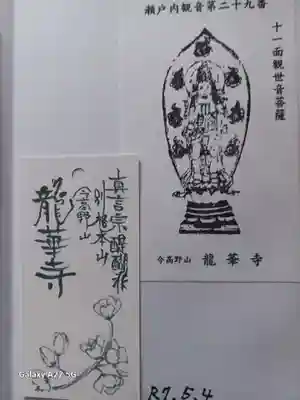 瀬戸内観音第二十九番
十一面観世音菩薩
今高野山 龍華寺
真言宗醍醐派
別格本山
今高野山
龍華寺
R7.5.4
Galaxy A22 5G